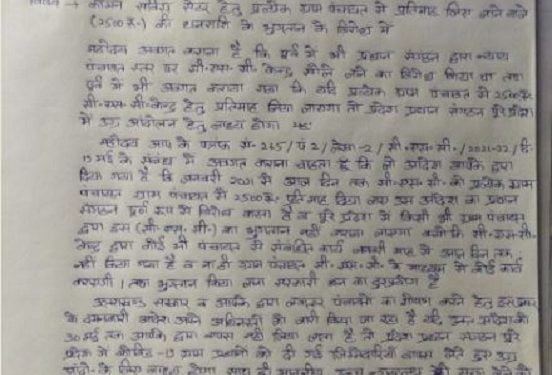 विषय → कॉमन सर्विस सेन्टर हेतु प्रत्येक ग्राम पंचायत से प्रतिमाह लिये जाने वाले
(2500 रु0) की धनराशि के भुगतान के विरोध में
महोदय अवगत कराना है कि पूर्व में भी प्रधान संगठन द्वारा न्याय
पंचायत स्तर पर सी०एस०सी० केन्द्र खोले जाने का विरोध किया था तथा
पूर्व में भी अवगत कराया गया कि यदि प्रत्येक ग्राम पंचायत से 2500रु०
सी०एस०सी० केन्द्र हेतु प्रतिमाह लिया जायेगा तो प्रदेश प्रधान संगठन पूरे प्रदेश
में उग्र आंदोलन हेतु बाध्य होगा
महोदय आप के पत्रांक सं० 245/पं 2/लेखा-2/सी०एस०सी०/2021-22/दि०
15 मई के सम्बन्ध में अवगत कराना चाहता है कि जो आदेश आपके द्वारा
दिया गया है कि जनवरी 2021 से आज दिन तक सी०एस०सी० को प्रत्येक ग्राम
पंचायत ग्राम पंचायत से 2500रु० प्रतिमाह दिया जाय इस आदेश का प्रधान
संगठन पूर्ण रूप से विरोध करता है व पूरे प्रदेश में किसी भी ग्राम पंचायत
द्वारा इस (सी०एस०सी०) का भुगतान नहीं कराया जायेगा क्योंकि सी०एस०सी०
केन्द्र द्वारा कोई भी पंचायत से संबंधित कार्य जनवरी माह से आज दिन तक
नहीं किया गया है व ना ही ग्राम पंचायत सी०एस०सी० के माध्यम से कोई कार्य
करायेगी। तथा भुगतान किया जाना सरकारी धन का दुरुपयोग है
उत्तराखण्ड सरकार व आपके द्वारा लगातार पंचायतों का शोषण करने हेतु इस प्रकार
के आदेश अपने अधिनस्थों को जारी किया जा रहा है यदि उक्त आदेश को
30 मई तक आपके द्वारा वापस नहीं लिया जाता है तो प्रदेश प्रधान संगठन पूरे
प्रदेश में कोविड-19 ग्राम प्रधानों को दी गई जिम्मेदारियों वापस देने हेतु
के लिये बाध्य होगा साथ ही